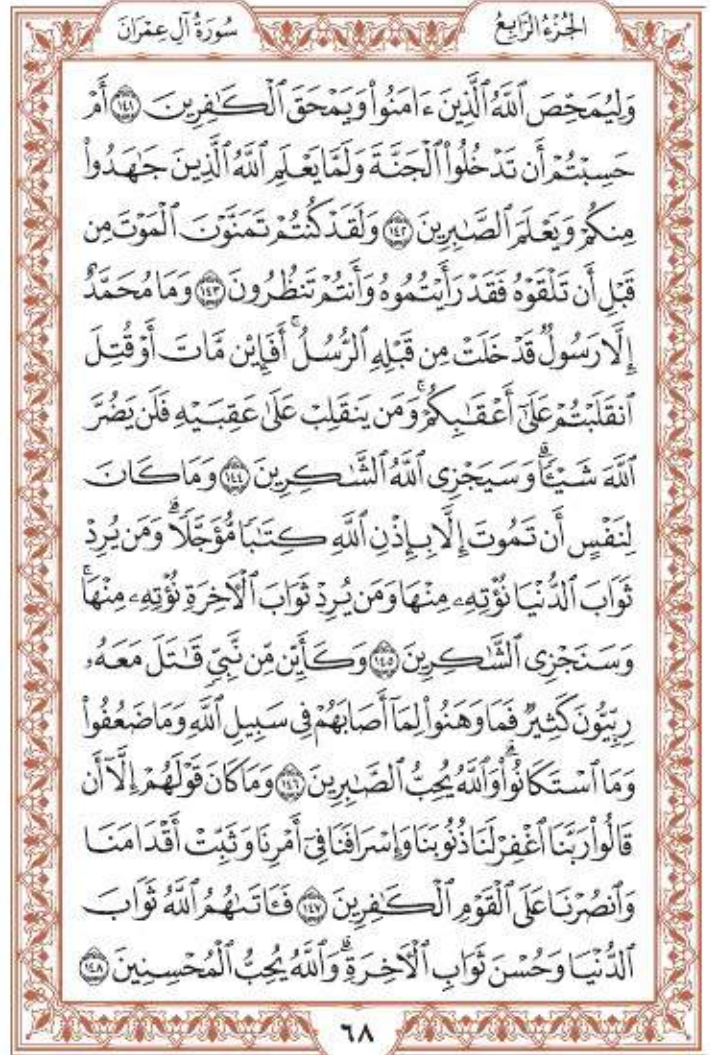 الجُزْءُ الرَّابِعُ
سُورَةُ آلِ عِمْرَانَ
وَلِيُمَحِّصَ ٱللَّهُ ٱلَّذِينَ ءَامَنُواْ وَيَمْحَقَ ٱلْكَٰفِرِينَ ١٤١ أَمْ
حَسِبْتُمْ أَن تَدْخُلُواْ ٱلْجَنَّةَ وَلَمَّا يَعْلَمِ ٱللَّهُ ٱلَّذِينَ جَٰهَدُواْ
مِنكُمْ وَيَعْلَمَ ٱلصَّٰبِرِينَ ١٤٢ وَلَقَدْ كُنتُمْ تَمَنَّوْنَ ٱلْمَوْتَ مِن
قَبْلِ أَن تَلْقَوْهُ فَقَدْ رَأَيْتُمُوهُ وَأَنتُمْ تَنظُرُونَ ١٤٣ وَمَا مُحَمَّدٌ
إِلَّا رَسُولٌ قَدْ خَلَتْ مِن قَبْلِهِ ٱلرُّسُلُ ۚ أَفَإِيْن مَّاتَ أَوْ قُتِلَ
ٱنقَلَبْتُمْ عَلَىٰٓ أَعْقَٰبِكُمْ ۚ وَمَن يَنقَلِبْ عَلَىٰ عَقِبَيْهِ فَلَن يَضُرَّ
ٱللَّهَ شَيْـًٔا ۗ وَسَيَجْزِى ٱللَّهُ ٱلشَّٰكِرِينَ ١٤٤ وَمَا كَانَ
لِنَفْسٍ أَن تَمُوتَ إِلَّا بِإِذْنِ ٱللَّهِ كِتَٰبًا مُّؤَجَّلًا ۗ وَمَن يُرِدْ
ثَوَابَ ٱلدُّنْيَا نُؤْتِهِۦ مِنْهَا وَمَن يُرِدْ ثَوَابَ ٱلْأَخِرَةِ نُؤْتِهِۦ مِنْهَا ۚ
وَسَنَجْزِى ٱلشَّٰكِرِينَ ١٤٥ وَكَأَيِّن مِّن نَّبِىٍّ قَٰتَلَ مَعَهُۥ
رِبِّيُّونَ كَثِيرٌ فَمَا وَهَنُواْ لِمَآ أَصَابَهُمْ فِى سَبِيلِ ٱللَّهِ وَمَا ضَعُفُواْ
وَمَا ٱسْتَكَانُواْ ۗ وَٱللَّهُ يُحِبُّ ٱلصَّٰبِرِينَ ١٤٦ وَمَا كَانَ قَوْلَهُمْ إِلَّآ أَن
قَالُواْ رَبَّنَا ٱغْفِرْ لَنَا ذُنُوبَنَا وَإِسْرَافَنَا فِىٓ أَمْرِنَا وَثَبِّتْ أَقْدَامَنَا
وَٱنصُرْنَا عَلَى ٱلْقَوْمِ ٱلْكَٰفِرِينَ ١٤٧ فَـَٔاتَىٰهُمُ ٱللَّهُ ثَوَابَ
ٱلدُّنْيَا وَحُسْنَ ثَوَابِ ٱلْأَخِرَةِ ۗ وَٱللَّهُ يُحِبُّ ٱلْمُحْسِنِينَ ١٤٨
٦٨